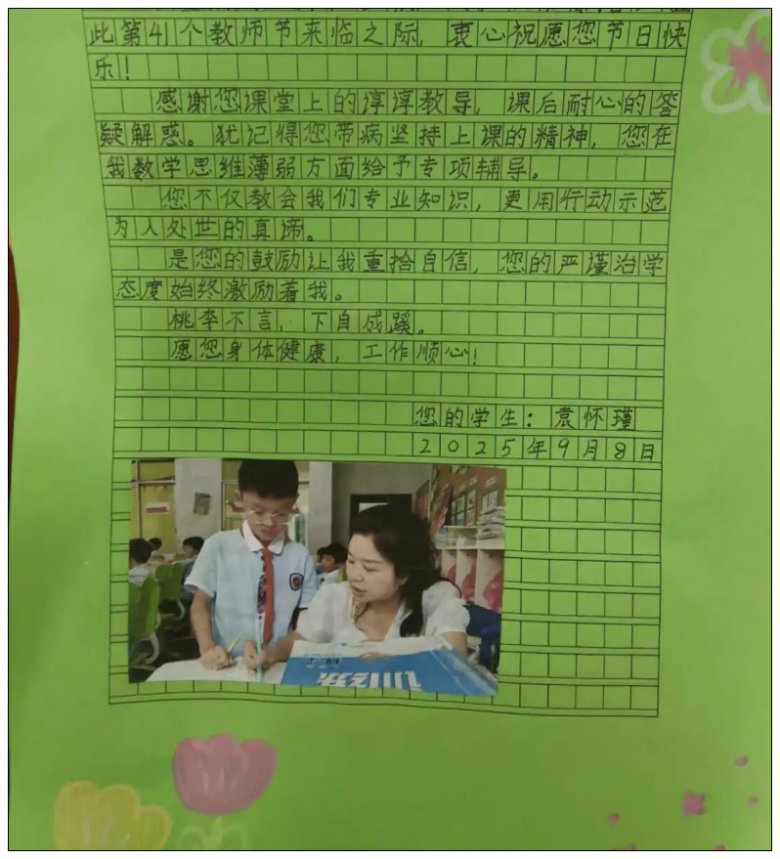 此第41个教师节来临之际，衷心祝愿您节日快
乐！
感谢您课堂上的谆谆教导，课后耐心的答
疑解惑。犹记得您带病坚持上课的精神，您在
我数学思维薄弱方面给予专项辅导。
您不仅教会我们专业知识，更用行动示范
为人处世的真谛。
是您的鼓励让我重拾自信，您的严谨治学
态度始终激励着我。
桃李不言，下自成蹊。
愿您身体健康，工作顺心！
您的学生：袁怀瑾
2025年9月8日
训练